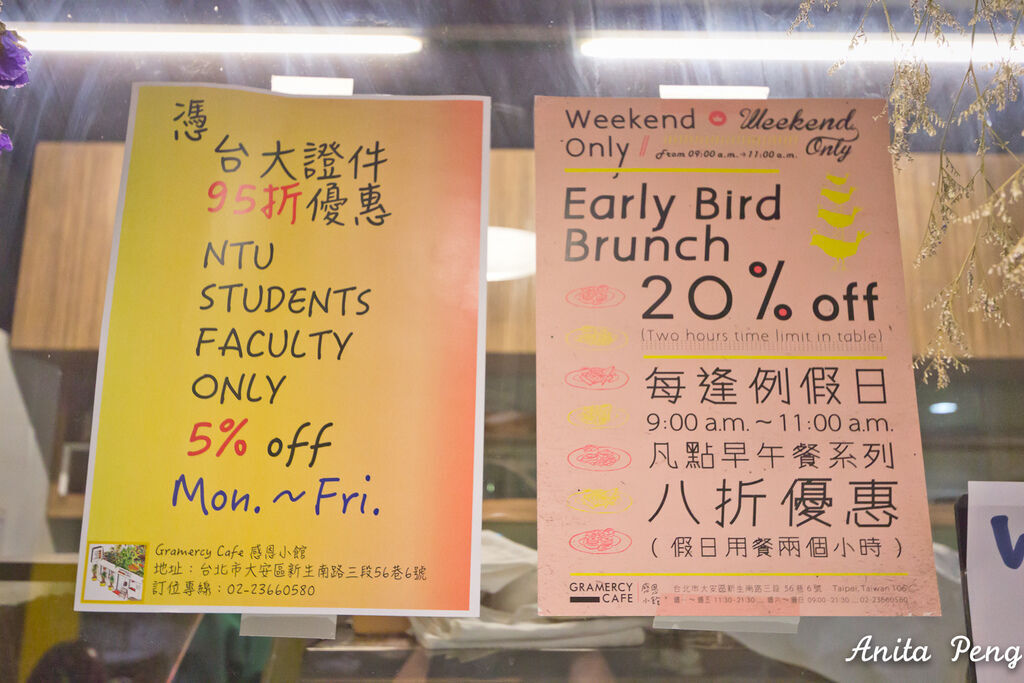 憑
台大證件
95折優惠
NTU
STUDENTS
FACULTY
ONLY
5% off
Mon.～Fri.
Gramercy Cafe 感恩小館
地址：台北市大安區新生南路三段56巷6號
訂位專線：02-23660580
Weekend
Only
Weekend
Only
From 09:00 a.m.→11:00 a.m.
Early Bird
Brunch
20% off
(Two hours time limit in table)
每逢例假日
9:00 a.m.～11:00 a.m.
凡點早午餐系列
八折優惠
（假日用餐兩個小時）
GRAMERCY
CAFE
感恩
小館
台北市大安區新生南路三段 56巷6號 Taipei, Taiwan 106
週一～週五 11:30-21:30 ... 週六～週日 09:00-21:30 ... 02-23660580
W
Anita Peng